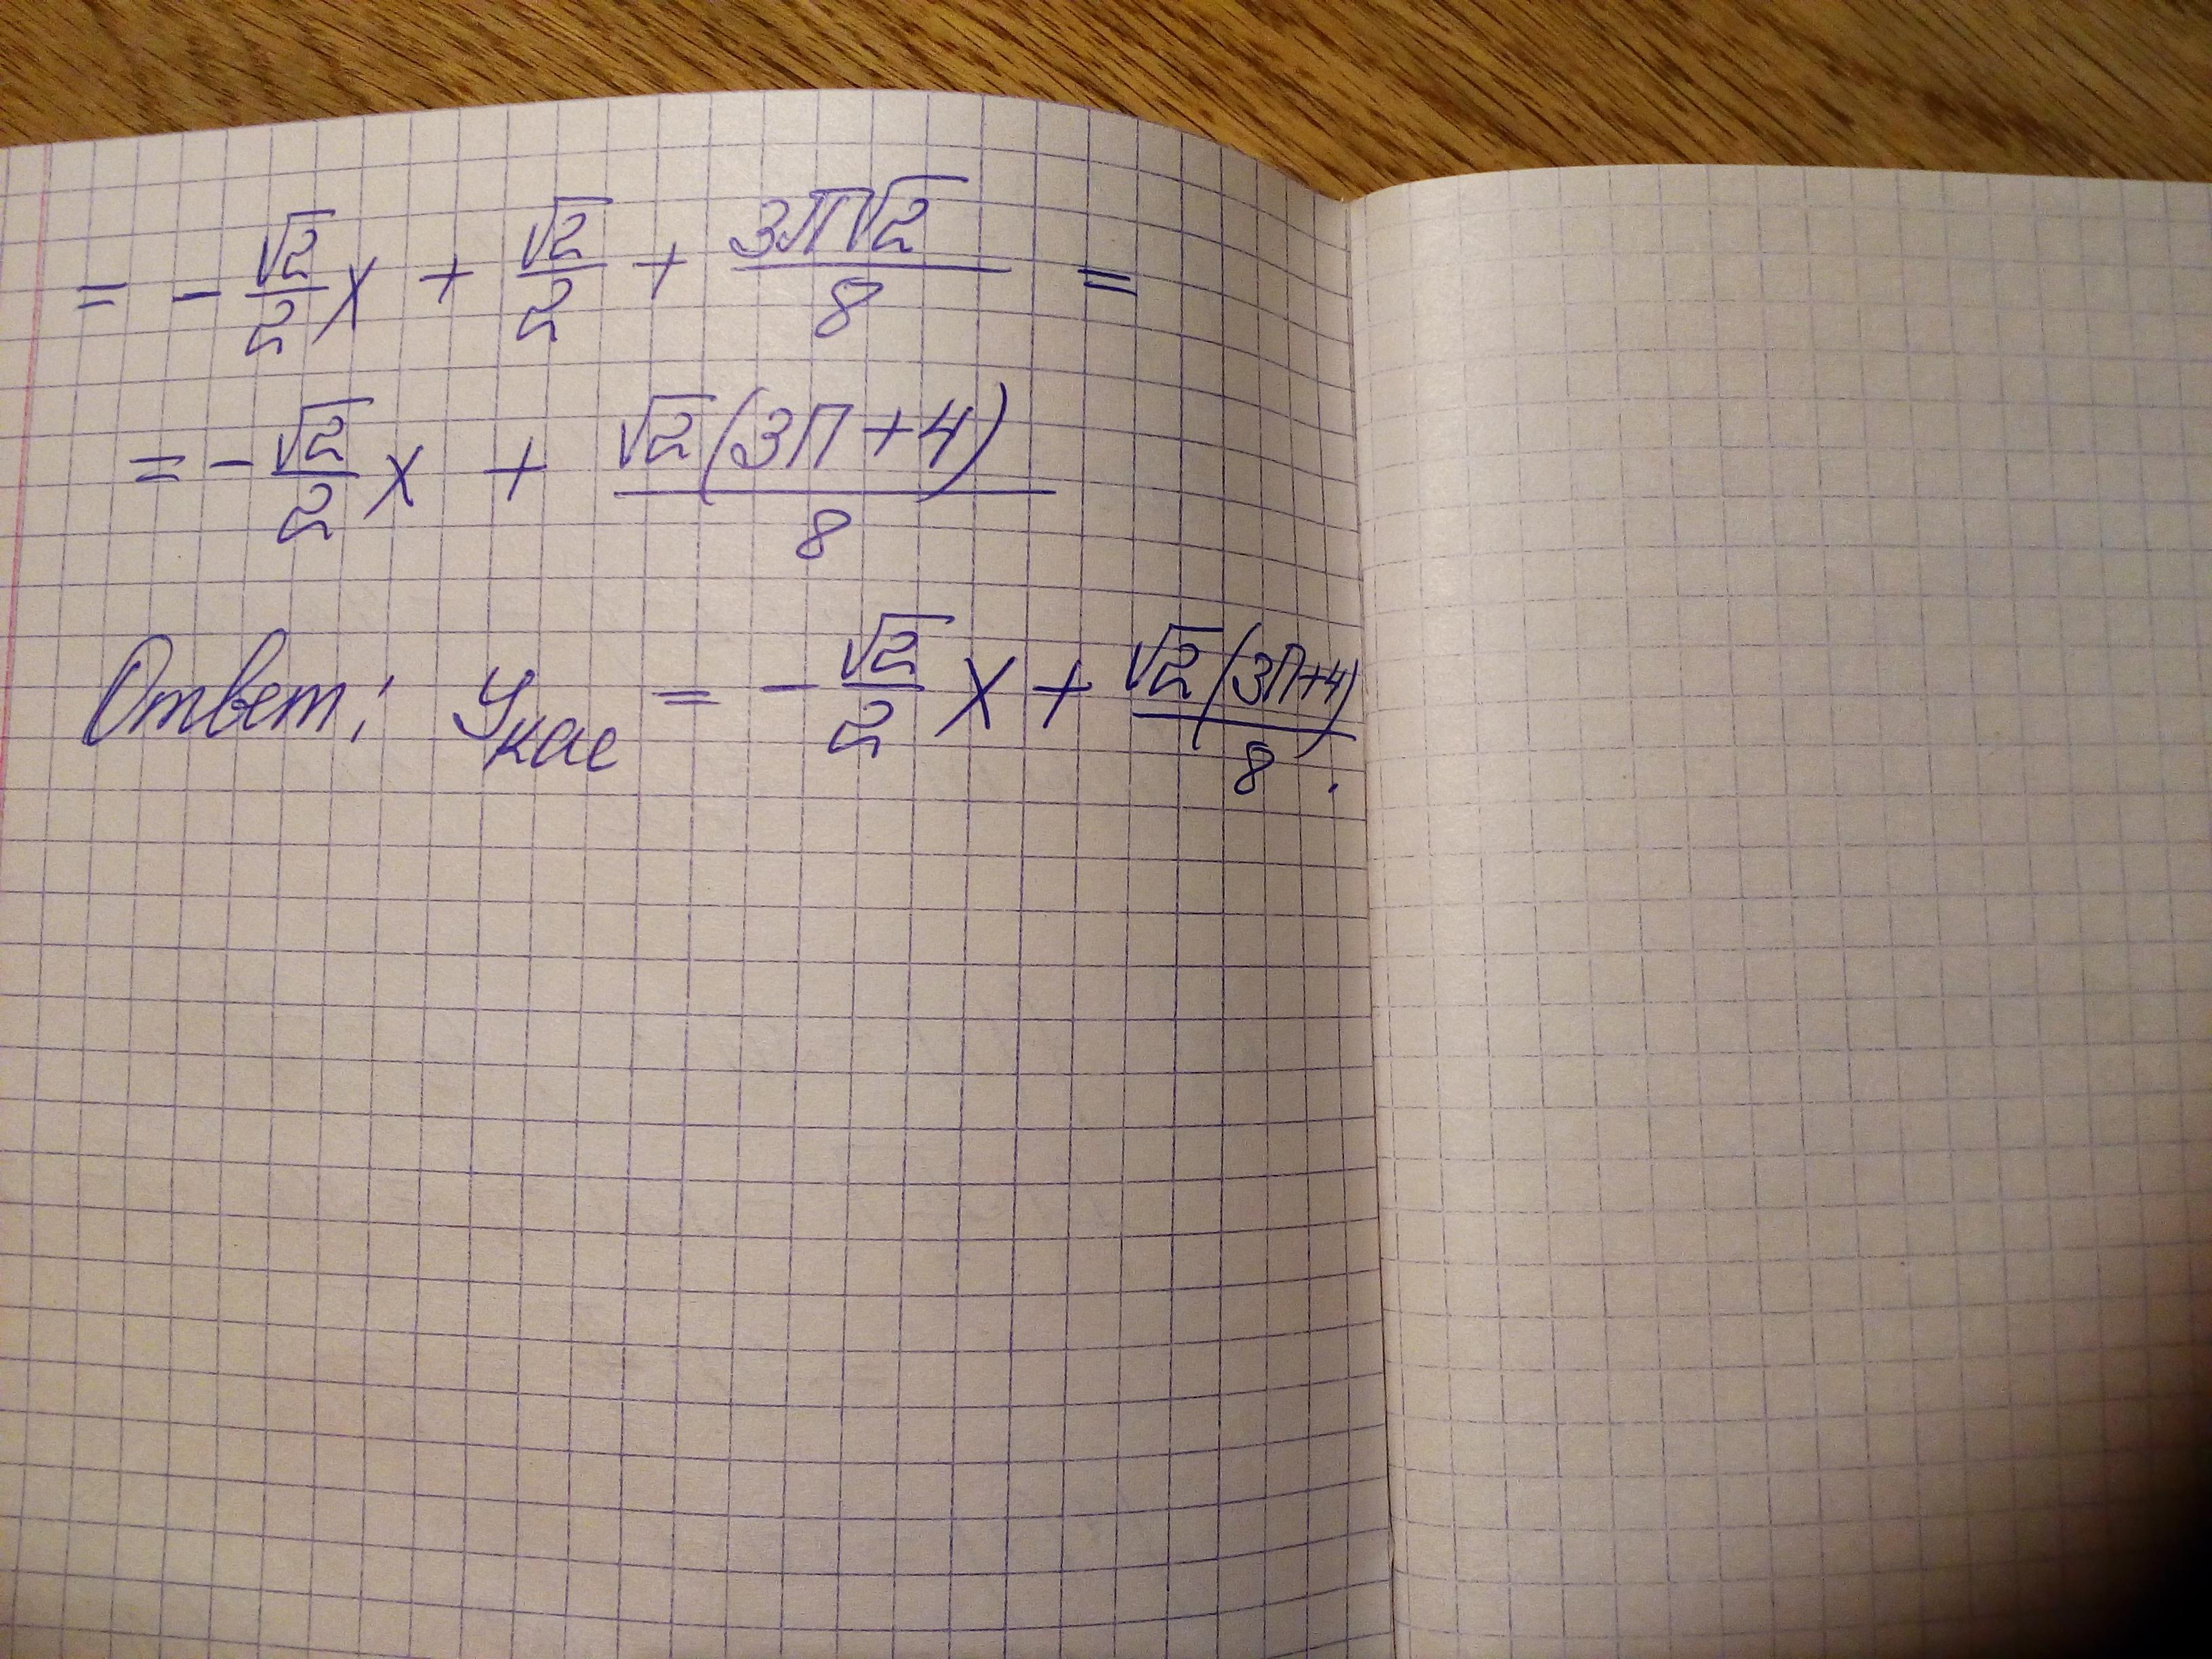 = - √2/2 x + √2/2 + 3π√2/8 =
= - √2/2 x + √2(3π+4)/8
Ответ: Yкас = - √2/2 x + √2(3π+4)/8.